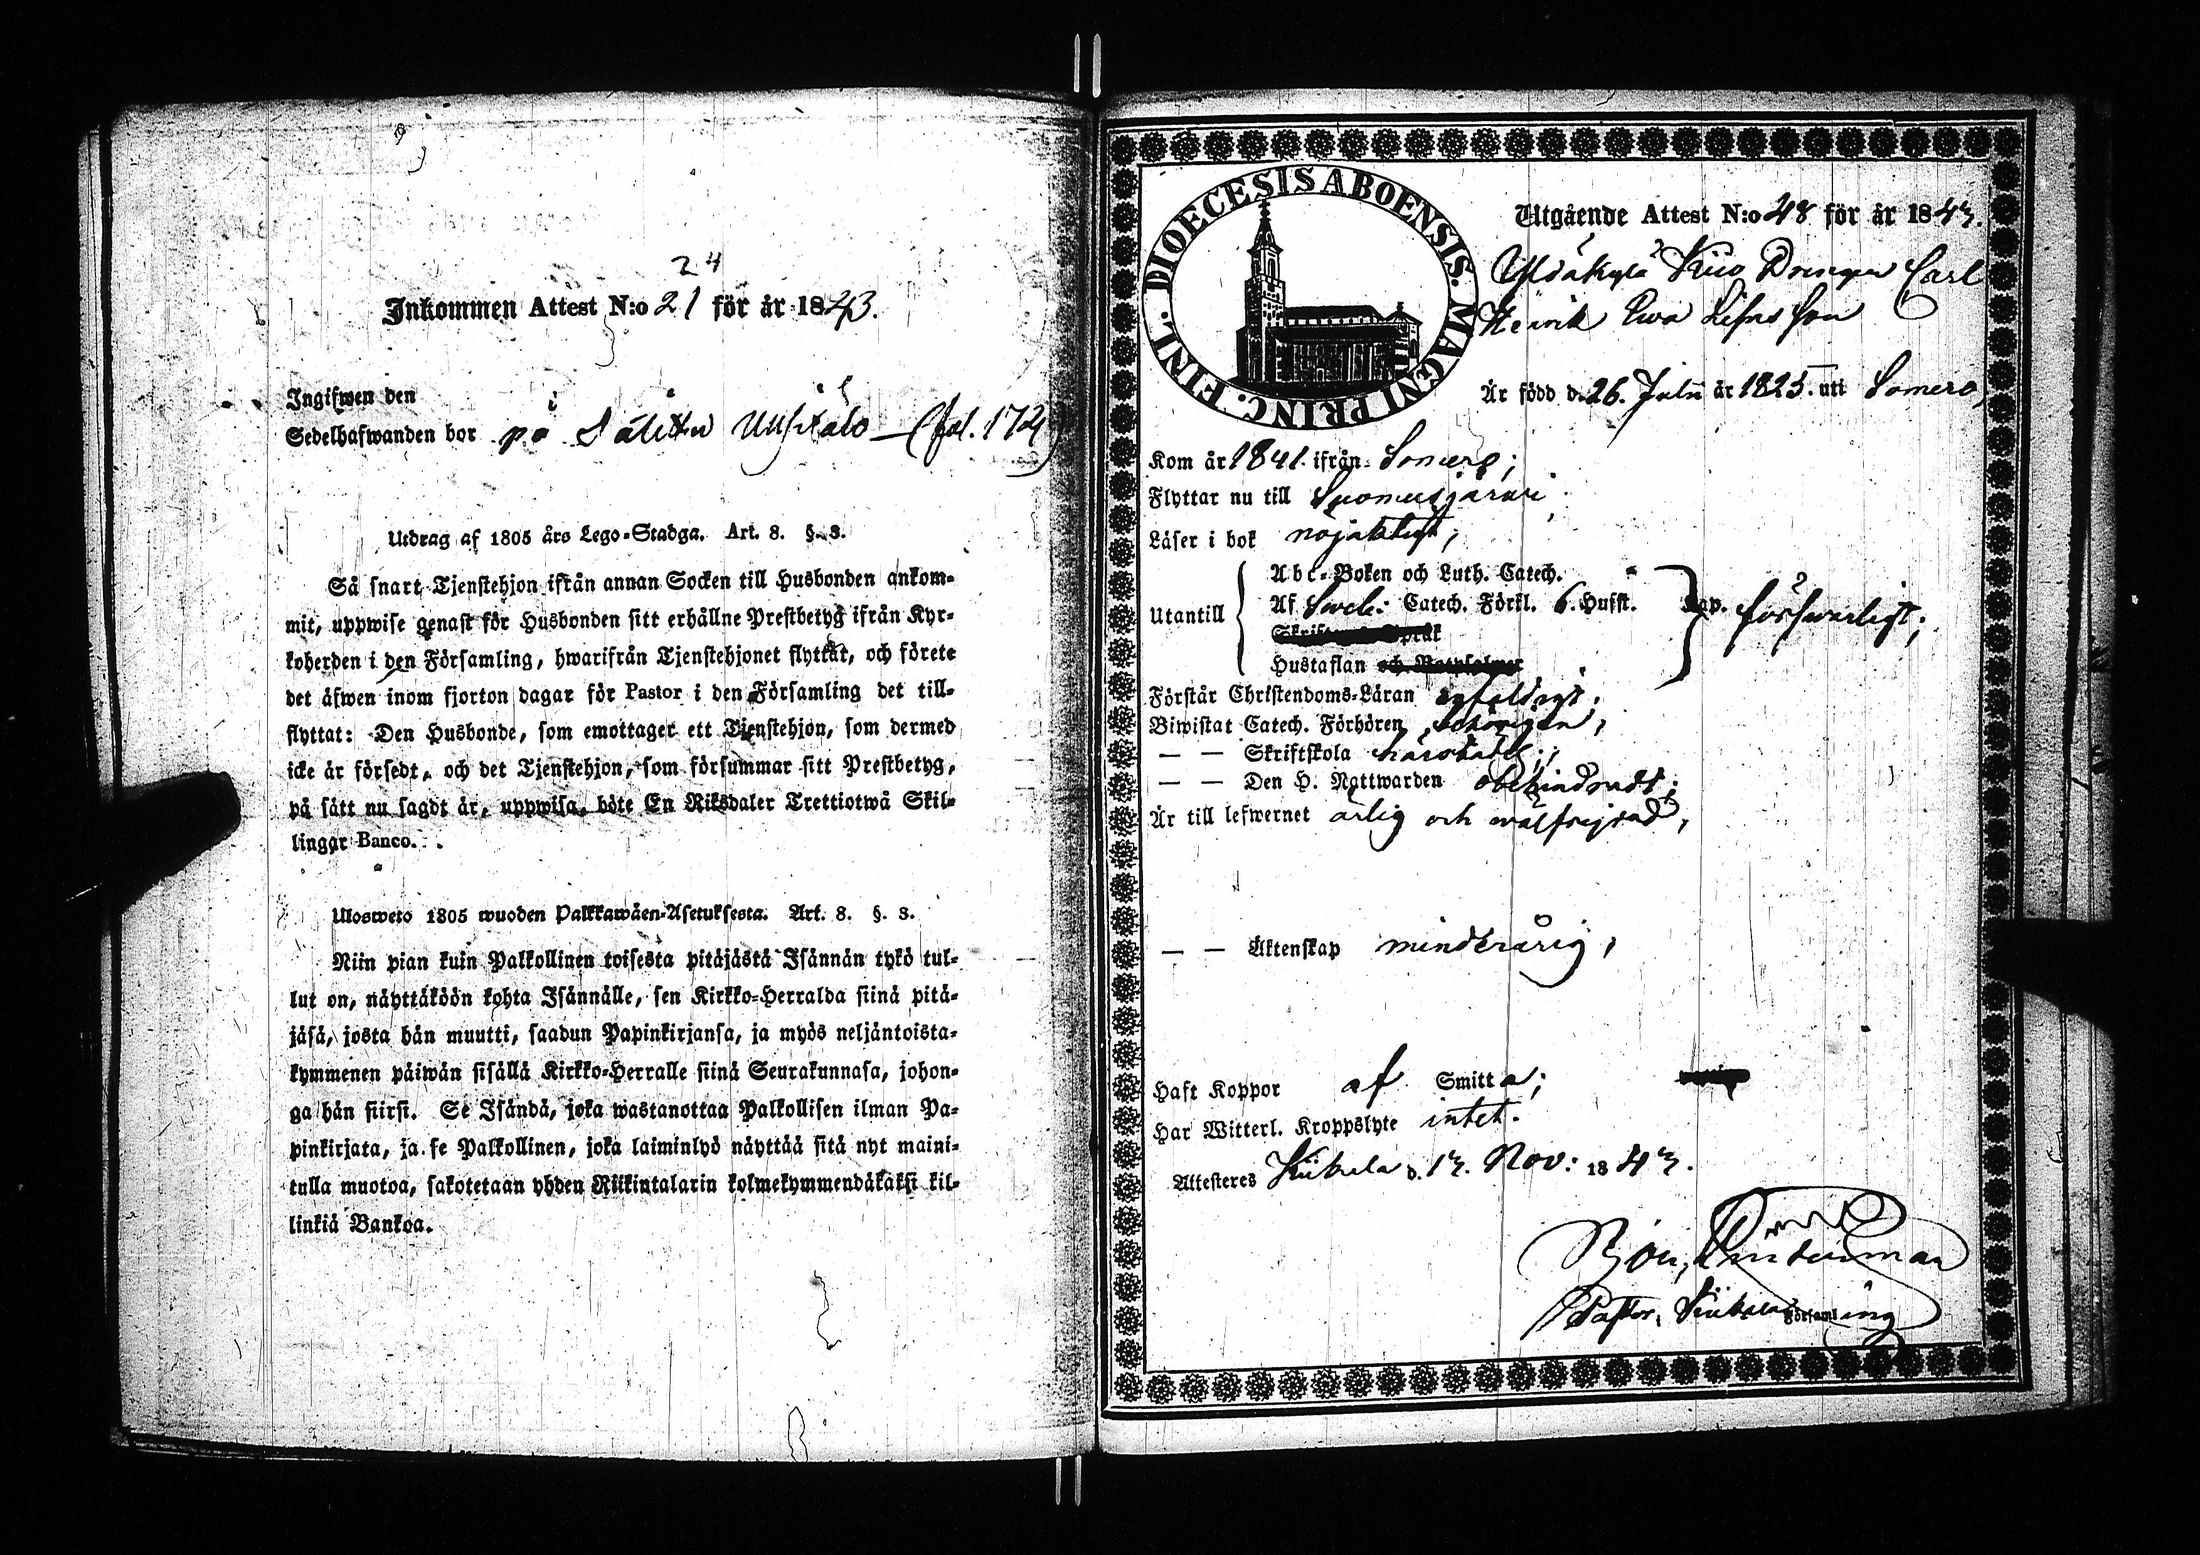 24
Inkommen Attest N:o 21 för år 1843.
Ingifwen den
Sedelhafwanden bor på (fol. 172)
Utdrag af 1805 års Lego-Stadga. Art. 8. §. 3.
Så snart Tjenstehjon ifrån annan Socken till Husbonden ankom-
mit, uppwise genast för Husbonden sitt erhållne Prestbetyg ifrån Kyr-
koherden i den Församling, hwarifrån Tjenstehjonet flyttat, och förete
det äfwen inom fjorton dagar för Pastor i den Församling det till-
flyttat: Den Husbonde, som emottager ett Tjenstehjon, som dermed
icke är försedt, och det Tjenstehjon, som försummar sitt Prestbetyg,
på sätt nu sagdt är, uppwisa, böte En Riksdaler Trettiotwå Skil-
lingar Banco.
Ulosweto 1805 wuoden Palkkawäen-Asetuksesta. Art. 8. §. 3.
Niin pian kuin Palkollinen toisesta pitäjästä Isännän tykö tul-
lut on, näyttäköön kohta Isännälle, sen Kirkko-Herralda siinä pitä-
jäsä, josta hän muutti, saadun Papinkirjansa, ja myös neljäntoista-
kymmenen päiwän sisällä Kirkko-Herralle siinä Seurakunnasa, johon-
ga hän siirsi. Se Isändä, joka wastanottaa Palkollisen ilman Pa-
pinkirjata, ja se Palkollinen, joka laiminlyö näyttää sitä nyt maini-
tulla muotoa, sakotetaan yhden Riikintalarin kolmekymmendäkaksi kil-
linkiä Bankoa.
DIOECESIS ABOENSIS. MAGNI PRINC. FINL.
Utgående Attest N:o 48 för år 1843.
Yldäkylä Kiio Drengen Carl
Henrik Ewa Lisas Son
Är född d. 26. Julii år 1825. uti Somero,
Kom år 1841. ifrån Somero;
Flyttar nu till Suomusjärwi
Läser i bok nöjaktigt,
Utantill
Abc-Boken och Luth. Catech.
Af Sveb. Catech. Förkl. 6. Hufst. Kap. försvarligt;
Skriftenes Språk
Hustaflan och Botpsalmer
Förstår Christendoms-Läran enfaldigt,
Biwistat Catech. Förhören behörigen,
— — Skriftskola
— — Den H. Nattwarden obehindradt;
Är till lefwernet ärlig och wälfrejdad,
— — Äktenskap minderårig,
Haft Koppor af Smitta;
Har Witterl. Kroppslyte intet.
Attesteres Kiikala d. 13. Nov: 1843.
Pastor, Kiikala Församling